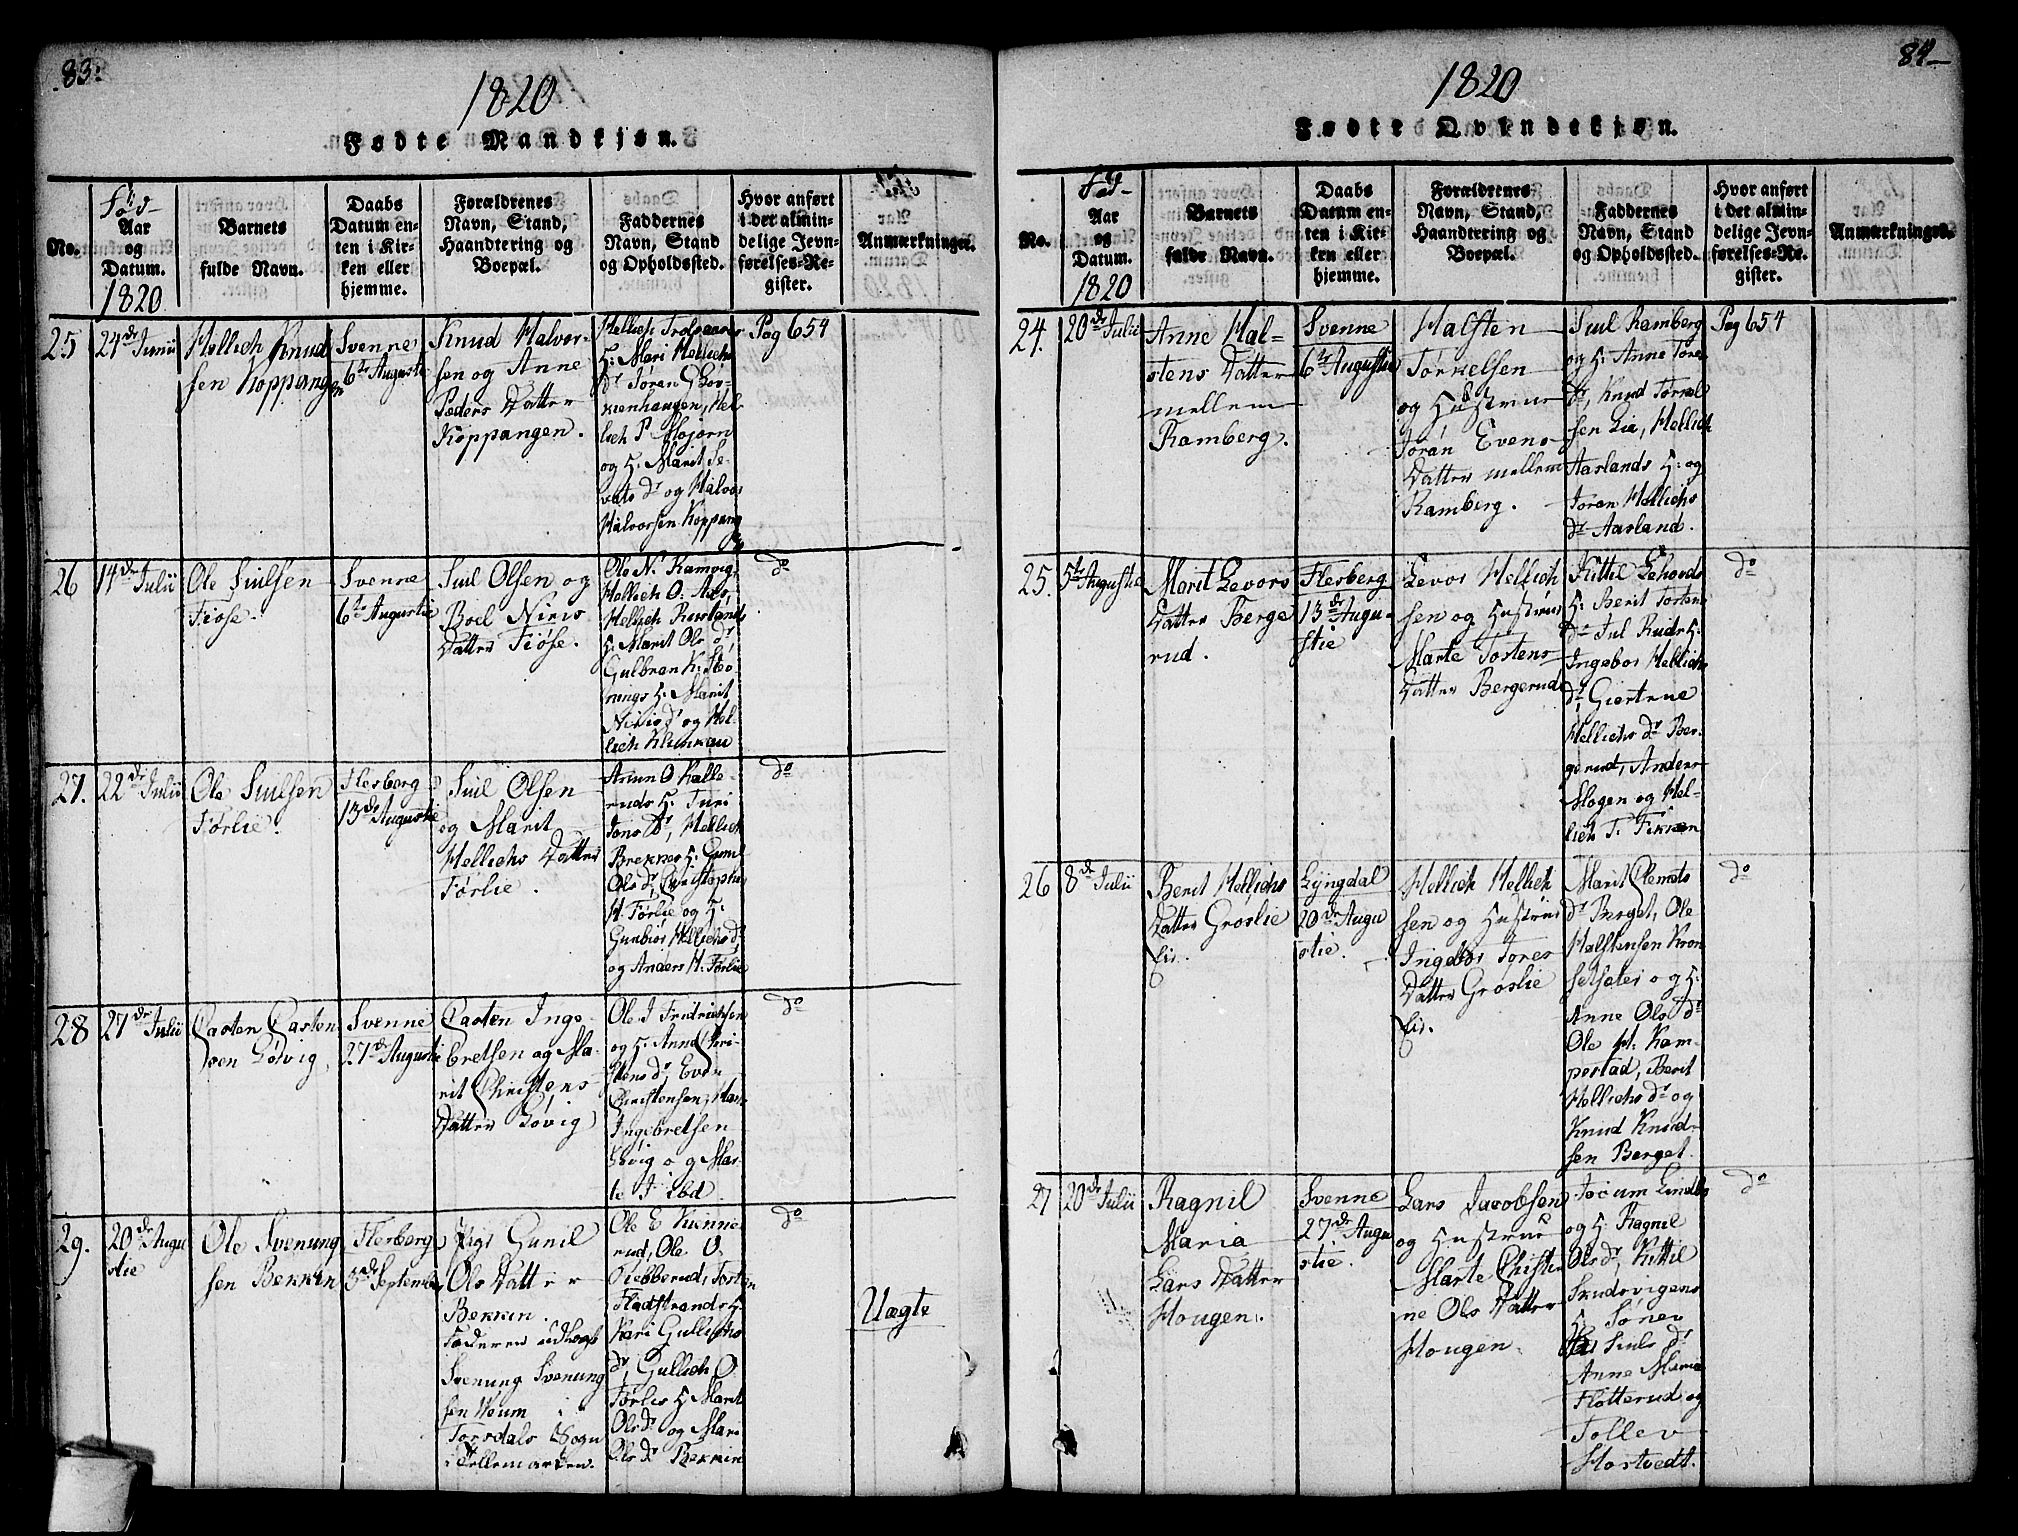 83.
1820
Fødte Mandkjøn.
No.
Fød-
Aar
og
Datum.
1820
Barnets
fulde Navn.
Daabs
Datum en-
ten i Kir-
ken eller
hjemme.
Forældrenes
Navn, Stand,
Haandtering og
Boepæl.
Faddernes
Navn, Stand
og Opholdssted.
Hvor anført
i det almin-
delige Jevn-
førelses-Re-
gister.
Anmærkninger.
25
24de Junii
Hellich Knud
sen Koppangen
Svenne
6te Augustie
Knud Halvor-
sen og Anne
Peders Datter
Koppangen.
Hellich
H: Mari Hellichs
Dr Jøran G Løv-
kienhaugen, Hel
lich P Mojorn
og H: Marit Se-
vats dr og Halvor
Halvorsen Koppang
en
Pag 654
26
14de Julii
Ole Siulsen
Fiøse.
Svenne
6te Augustie
Siul Olsen og
Boel Niris
Datter Fiøse.
Ole N. Kampig,
Hellich O. Aas,
Hellich Ruslands
H: Marit Ols dr,
Gulbran K: Stø-
nings H: Marit
Niris dr og Hel-
lich
do
27.
22de Julii
Ole Siulsen
Førlie.
Flesberg
13de Augustie
Siul Olsen
og Marit
Hellichs Datter
Førlie.
Anun O Kalle-
ruds H: Turi
Jons Dr, Hellich
Brekkes H: Gunil
Ols dr, Christopher
H. Førlie og H:
Gunbior Hellichs dr
og Anders H. Førlie
do
28
27de Julii
Casten Casten
sen Løvig,
Svenne
27de Augustie
Casten Inge-
bretsen og Ma-
rit Christens
Datter Løvig
Ole J Fridrichsen
og H: Anne Chri-
stens dr, Even
Christensen, Han
Ingebretsen
Løvig o g Mar-
te J ibd.
do
29.
20de Augu
stie
Ole Svenung
sen Bekkin
Flesberg
3de September
Pige Gunil
Ols Datter
Bekkin.
Faderen udlagt
Svenung Svenung
sen Moum i
Torsdals Sogn
i Tellemarken.
Ole E Kienne
rud, Ole O.
Torsten
Fladstrands H.
Kari Gullichs
dr, Gullich O
Førlies H Marit
Ols dr og Mari
Ols dr Bekkin
do
Uægte
84
1820
Fødte Qvindekjøn.
No.
Fød-
Aar
og
Datum.
1820
Barnets
fulde Navn.
Daabs
Datum en-
ten i Kir-
ken eller
hjemme.
Forældrenes
Navn, Stand,
Haandtering og
Boepæl.
Faddernes
Navn, Stand
og Opholdssted.
Hvor anført
i det almin-
delige Jevn-
førelses-Re-
gister.
Anmærkninger.
24.
20de Julii
Anne Hal-
stens Datter
mellem
Ramberg.
Svenne
6te Augustie
Halsten
Torkelsen
og Hustrue
Joran Evens
Datter mellem
Ramberg.
Siul Ramberg
og H: Anne Tores
Dr, Knud Torkel
sen Lia, Hellich
Aaslands H: og
Joran Hellichs
Dr Aasland.
Pag 654
25.
5te Augustie
Marit Levors
Datter Berge
rud.
Flesberg
13de Augu-
stie
Levor Hellich
sen og Hustrue
Marte Tostens
Datter Bergerud
Kittil Lehovds
H: Berit Tostens
Dr Jul Ruds H:
Ingebor Hellichs
dr, Giertrue
Hellichs dr Ber-
gerud, Anders
Mogen og Hel-
lich T. Fekken
do
26
8de Julii
Berit Hellichs
Datter Groslie
Eid.
Lyngdal
20de Augu
stie.
Hellich Hellich
sen og Hustrue
Ingebor Tores
Datter Groslie
Eid.
Marit Clemets
dr Berget, Ole
Halstensen Kron
setseter o g H:
Anne Ols dr
Ole H. Kam-
pestad, Berit
Hellichs dr og
Knud Knud-
sen Berget.
do
27
20de Julii
Ragnil
Maria
Lars Datter
Hougen.
Svenne
27de Augu
stie.
Lars Jacobsen
og Hustrue
Marte Christi-
ne Ols Datter
Hougen.
Jocum Lindbo
og H: Ragnil
Ols dr, Kittil
Skudsvigens
H. Sønev
Siuls dr
Anne Maria
Flotterud og
Tollev
Hostvedt.
do